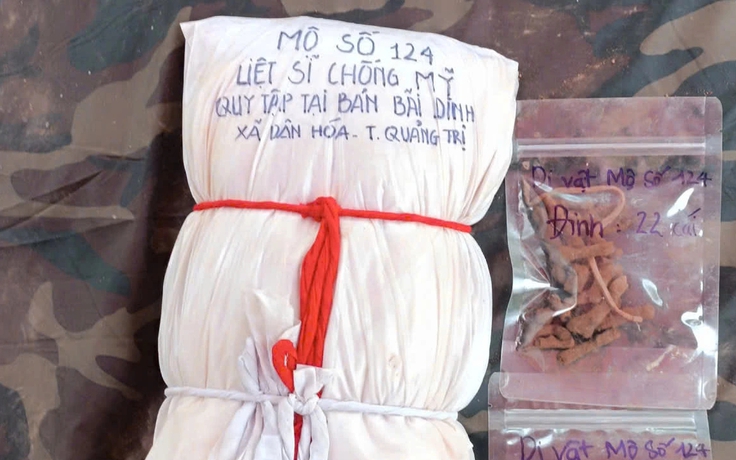 MỘ SỐ 124
LIỆT SĨ CHỐNG MỸ
QUY TẬP TẠI BẢN BÃI DINH
XÃ DÂN HÓA - T. QUẢNG TRỊ
Di vật Mộ Số 124
Đinh : 22 cái
Di vật Mộ Số 124